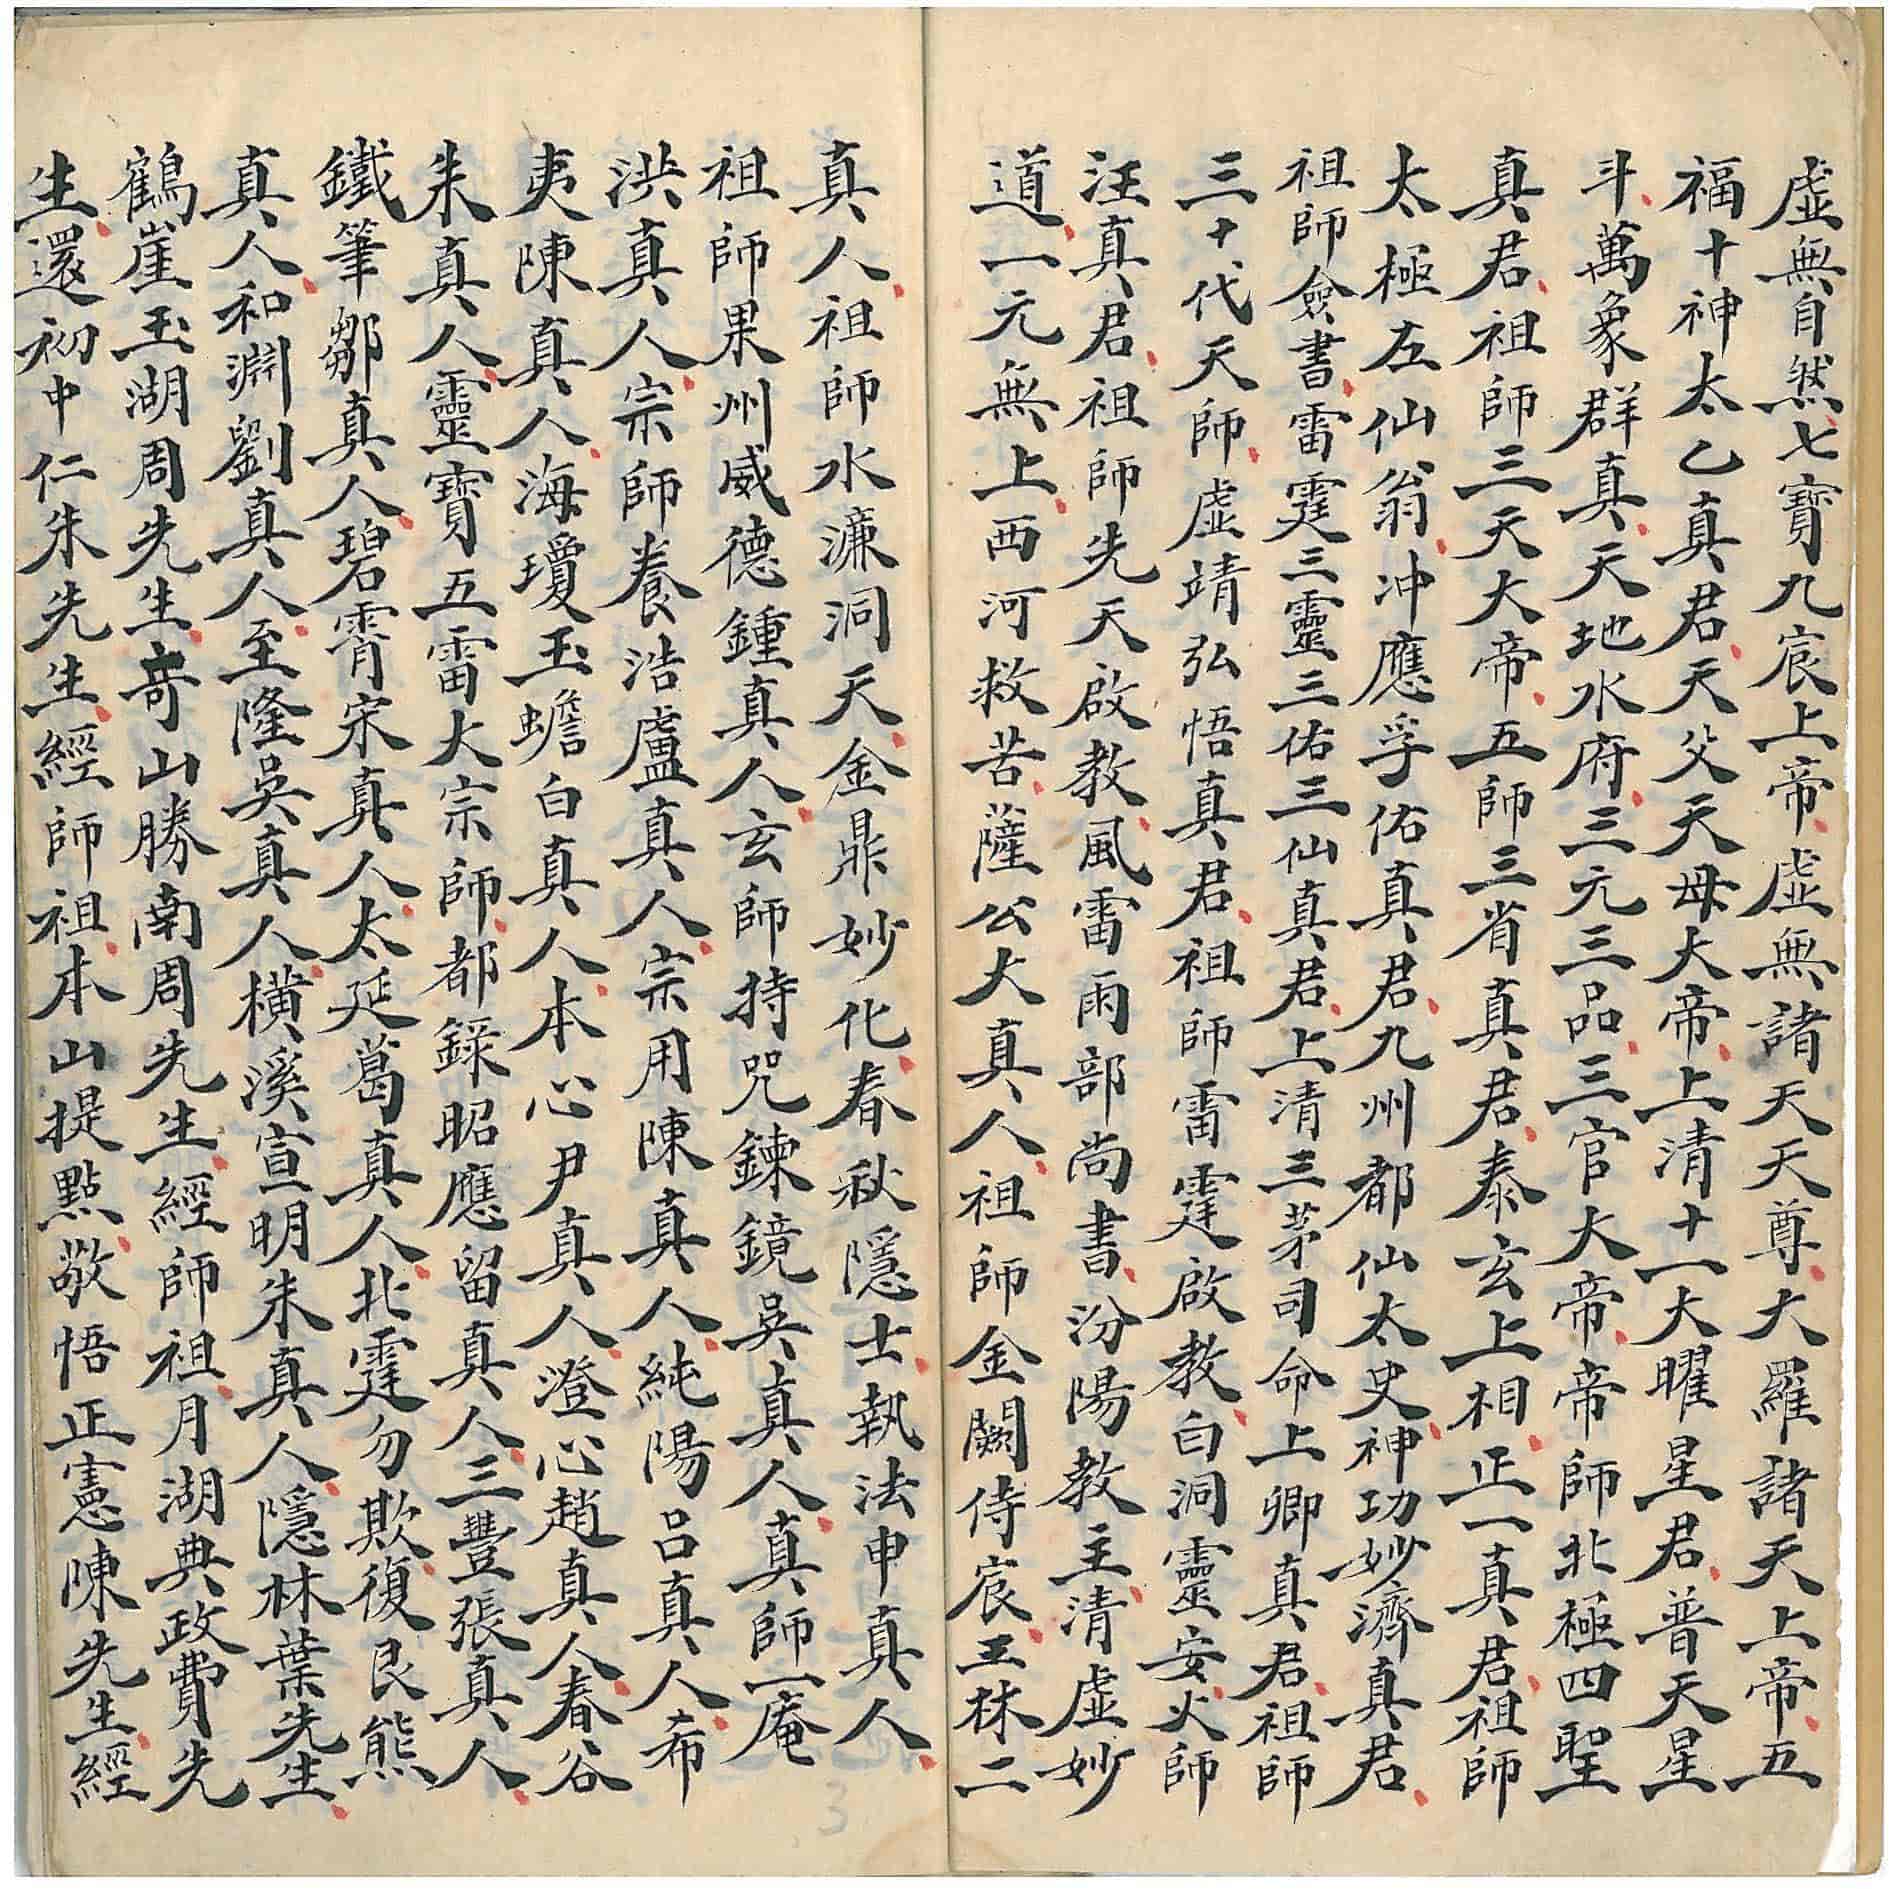 虛無自然七寶九宸上帝虛無諸天天尊大羅諸天上帝五
福十神太乙真君天父天母大帝上清十一大曜星君普天星
斗萬象群真天地水府三元三品三官大帝帝師北極四聖
真君祖師三天大帝五師三省真君泰玄上相正一真君祖師
太極左仙翁冲應孚佑真君九州都仙太史神功妙濟真君
祖師僉書雷霆三靈三佑三仙真君上清三茅司命上卿真君祖師
三十代天師虛靖弘悟真君祖師雷霆啟教白洞靈安火師
汪真君祖師先天啟教風雷雨部尚書汾陽教主清虛妙
道一元無上西河救苦薩公大真人祖師金闕侍宸王林二
真人祖師水濂洞天金鼎妙化春秋隱士執法申真人
祖師果州威德鍾真人玄師持咒鍊鏡吳真人真師一庵
洪真人宗師養浩盧真人宗用陳真人純陽呂真人希
夷陳真人海瓊玉蟾白真人本心尹真人澄心趙真人春谷
朱真人靈寶五雷大宗師都錄昭應留真人三豐張真人
鐵筆鄒真人碧霄宋真人太延葛真人北霆勿欺復艮熊
真人和淵劉真人至隆吳真人橫溪宣明朱真人隱林葉先生
鶴崖玉湖周先生奇山勝南周先生經師祖月湖典政費先
生還初中仁朱先生經師祖本山提點敬悟正憲陳先生經